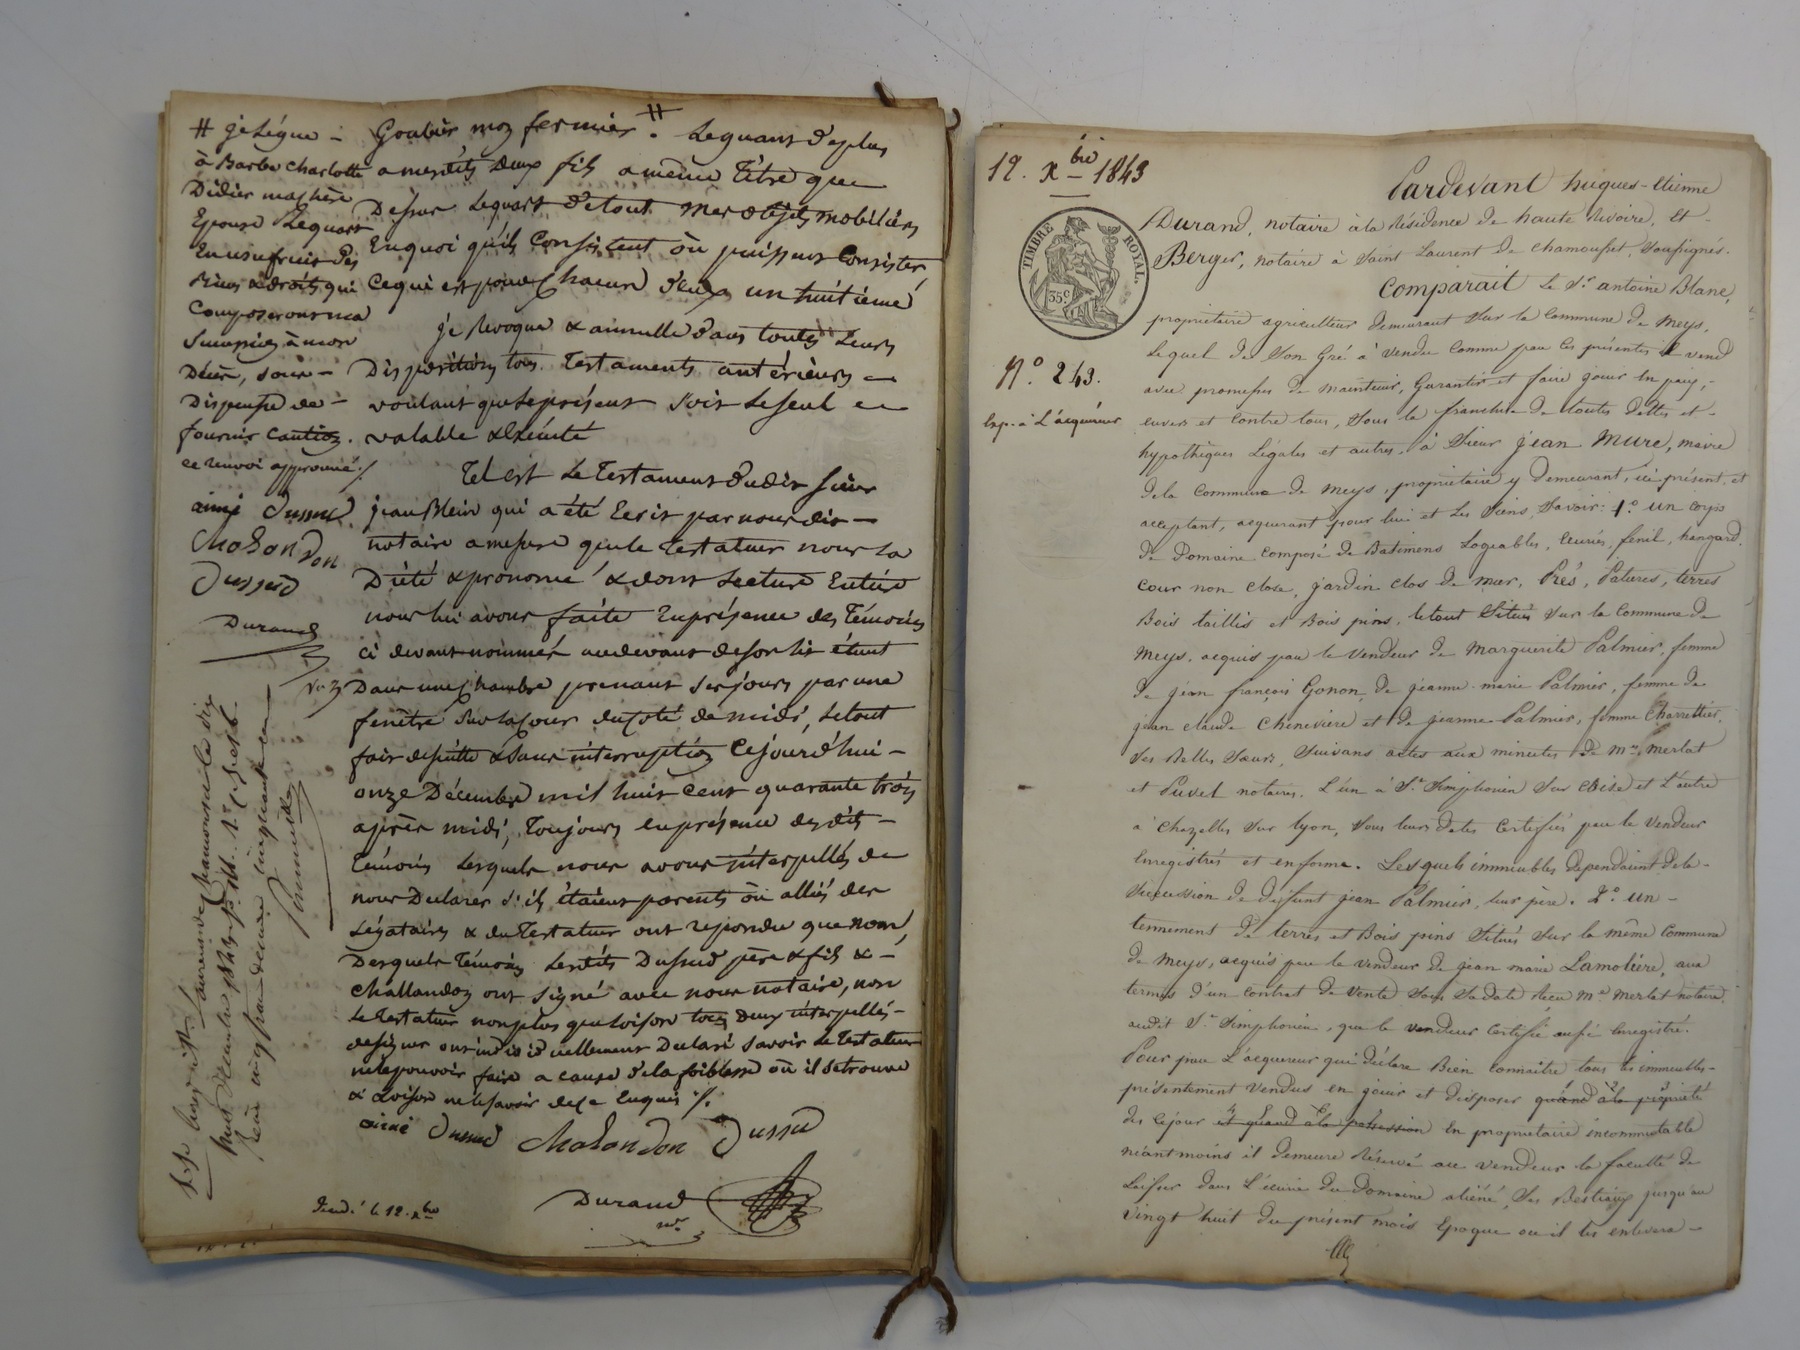 # je Légue -
à Barbe Charlotte
Didier ma chère
Epouse Lequart
En usufruit des
Biens & droits qui
Composeront ma
Succession à mon
Décès, sous -
Dispense de -
fournir caution.
ce renvoi approuvé ./.
aimé Dussud
Chalandon
Dussud
Durand
Goubier mon fermier #. Lequart d'eplus
a mesdits deux fils a même titre que
Dessus Lequart d'etout mes objets mobiliers
En quoi qu'ils Consistent où puissent Consister,
Ce qui est pour Chacun d'eux un huitième
je Révoque & annulle dans toutes Leurs
Dispositions tous testaments antérieurs -
voulant que le présent soit Le seul -
valable & Exécuté
Tel est Le Testament dudit sieur
jean Blein qui a été Ecrit par nous dit -
notaire a mesure que le Testateur nous L'a
Dicté & prononcé & dont Lecture Entière
nous lui avons faite En présence des Témoins
ci devant nommés audevant de son lit étant
Dans une Chambre prenant ses jours par une
fenêtre sur La Cour du Coté de midi, Le tout
fait de suitte & sans interruption Cejourd'hui -
onze Décembre mil huit Cent quarante trois
après midi, Toujours en présence desdits -
Témoins Lesquels nous avons interpellés de
nous Déclarer s'ils étaient parents où alliés des
Légataires & du Testateur ont repondu que non,
Desquels Témoins Lesdits Dussud père & fils & -
Challandon ont signé avec nous notaire, non
Le Testateur non plus que Loison tous Deux interpellés -
de signer ont individuellement Declaré savoir Le Testateur
ne le pouvoir faire a cause de la foiblesse où il se trouve
& Loison ne le savoir de ce Enquis ./.
aimé Dussud Chalandon Dussud
Durand
nre
12. Xbre 1843
TIMBRE ROYAL.
35c
No. 243.
Exp. à L'acquéreur
Pardevant hugues-Etienne
Durand, notaire à la Résidence de haute Rivoire, Et -
Berger, notaire à Saint Laurent de chamousset, soussignés.
Comparait Le Sr. antoine Blanc,
propriétaire agriculteur demeurant Sur la Commune de Meys,
Lequel de Son Gré a vendu Comme par Ces présentes il vend
avec promesse de maintenir, Garantir et faire jouir en paix, -
envers et contre tous, Sous la franchise de toutes dettes et -
hypothèques Légales et autres, à Sieur jean Mure, maire
de la Commune de Meys, propriétaire y Demeurant, ici présent, et
acceptant, acquerant pour lui et les Siens, Savoir: 1o. un corps
de Domaine Composé de Batimens Logeables, Ecuries, fenil, hangard,
cour non close, jardin clos de mur, Prés, Patures, terres
Bois taillis et Bois pins, le tout Situés Sur la Commune de
Meys, acquis par le Vendeur de Marguerite Palmier, femme
de jean françois Gonon, de jeanne marie Palmier, femme de
jean claude Chenevière et de jeanne Palmier, femme Charrettier,
ses Belles Sœurs, Suivans actes aux minutes de Mes. Merlat
et Puvel notaires, L'un à St. Simphorien Sur Coise et L'autre
à Chazelles Sur lyon, Sous leurs dates Certifiés par le Vendeur
Enregistrés et en forme. Lesquels immeubles dependaient de la -
Succession de defunt jean Palmier, leur père. 2o. un -
tennement de terres et Bois pins Situés Sur la même Commune
de Meys, acquis par le Vendeur de jean marie Lamolière, aux
termes d'un Contrat de Vente Sous Sa date Reçu Me. Merlat notaire
audit St. Simphorien, que le vendeur Certifie aussi Enregistré.
Pour par L'acquereur qui déclare Bien Connaitre tous les immeubles -
présentement Vendus en jouir et disposer quand à la propriété
des Cejour et quand à la possession En propriétaire incommutable
néantmoins il demeure Réservé au Vendeur la faculté de
Laisser dans L'écurie du Domaine aliéné, Ses Bestiaux jusqu'au
Vingt huit du présent mois Epoque ou il les enlevera -